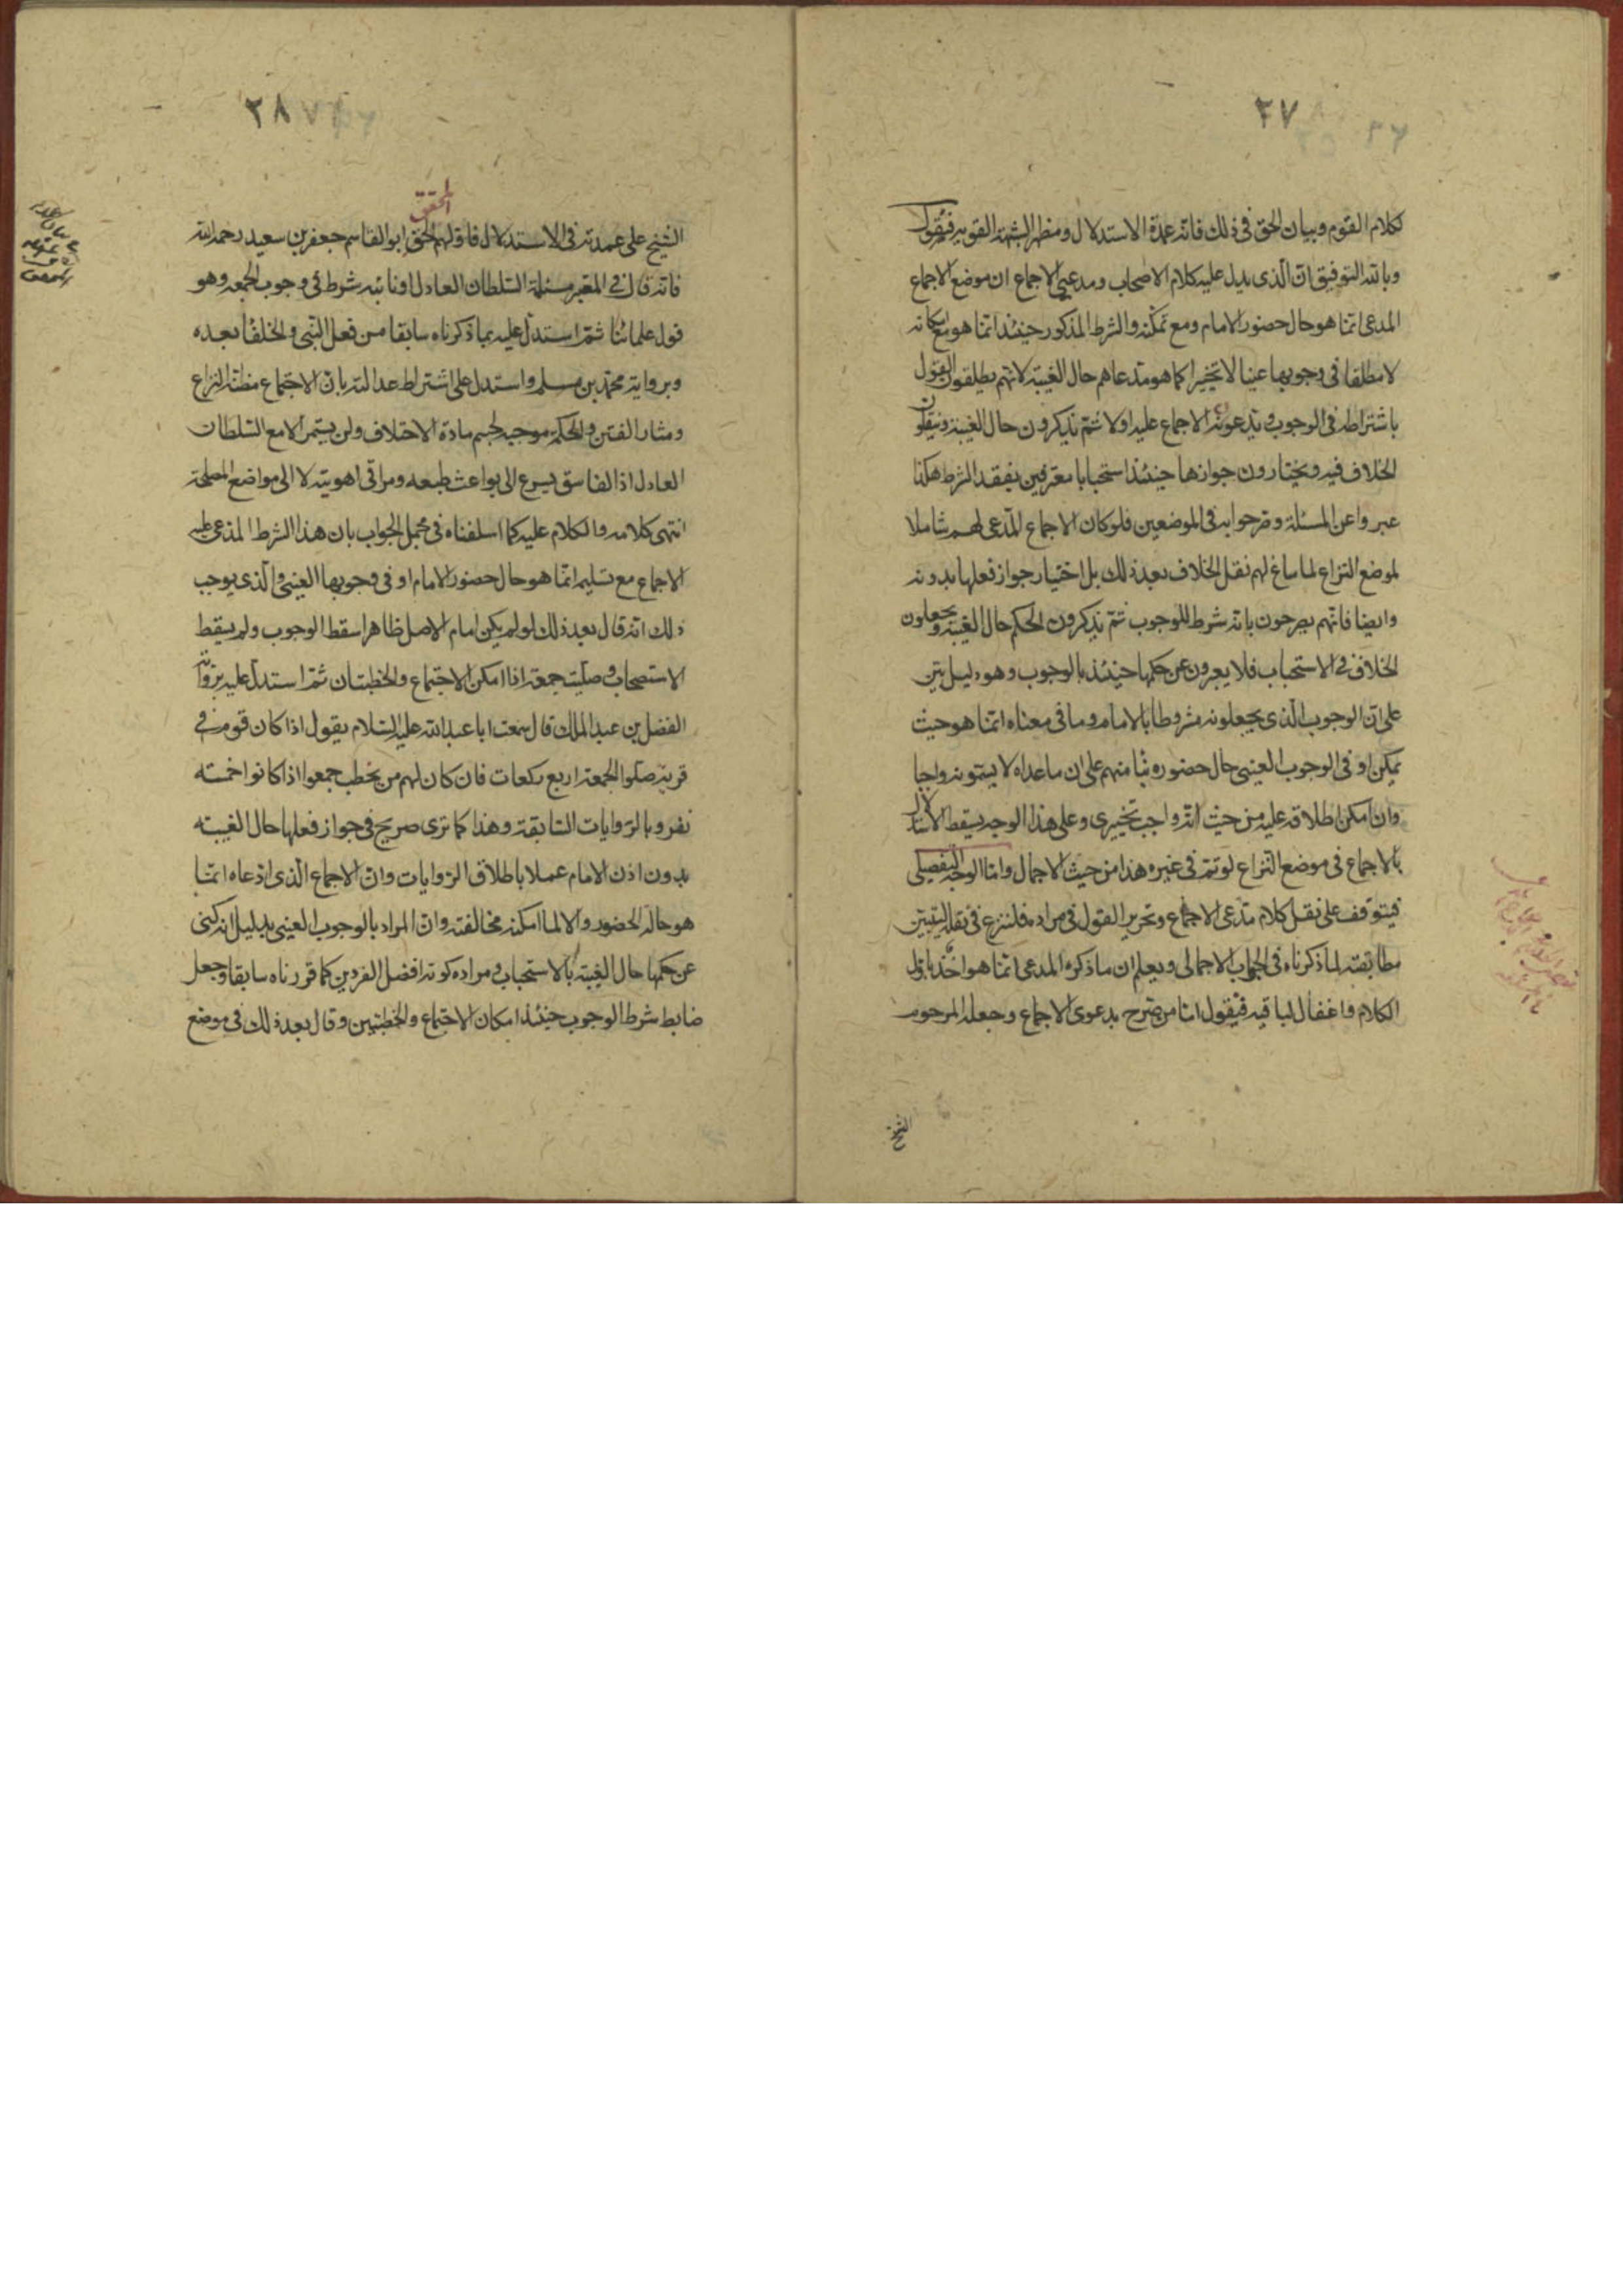 ٢٧
كلام القوم وبيان الحق فى ذلك فانه عمدة الاستدلال ومظهر الشبهة القويه فنقول
وبالله التوفيق ان الذى يدل عليه كلام الاصحاب ومدعى الاجماع ان موضع الاجماع
المدعى انما هو حال حضور الامام ومع تمكنه والشرط المذكور حينئذ انما هو مع امكانه
لا مطلقا فى وجوبها عينا لا تخييرا كما هو مدعاهم حال الغيبة لانهم يطلقون القول
باشتراطه فى الوجوب ويدعون الاجماع عليه اولا ثم يذكرون حال الغيبة وينقلون
الخلاف فيه ويختارون جوازها حينئذ استحبابا معترفين بفقد الشرط هكذا
عبروا عن المسئلة وصرحوا به فى الموضعين فلو كان الاجماع المدعى لهم شاملا
لموضع النزاع لما ساغ لهم نقل الخلاف بعد ذلك بل اختيار جواز فعلها بدونه
وايضا فانهم يصرحون بانه شرط للوجوب ثم يذكرون الحكم حال الغيبة ويجعلون
الخلاف فى الاستحباب فلا يعبرون عن حكمها حينئذ بالوجوب وهو دليل بين
على ان الوجوب الذى يجعلونه مشروطا بالامام وما فى معناه انما هو حيث
يمكن او فى الوجوب العينى حال حضوره بنا منهم على ان ما عداه لا يسمونه واجبا
وان امكن اطلاقه عليه من حيث انه واجب تخييرى وعلى هذا الوجه يسقط الاستدلال
بالاجماع فى موضع النزاع لو تم فى غيره هذا من حيث الاجمال واما الوجه التفصيلى
فيتوقف على نقل كلام مدعى الاجماع وتحرير القول فى مراده فلنشرع فى نقله ليتبين
مطابقته لما ذكرناه فى الجواب الاجمالى ويعلم ان ما ذكره المدعى انما هو اخذ باول
الكلام واغفال لباقيه فنقول اما من صرح بدعوى الاجماع وجعله المرحوم
الشيخ
٢٨
المحقق
الشيخ على عمدته فى الاستدلال فاولهم المحقق ابو القاسم جعفر بن سعيد رحمه الله
فانه قال فى المعتبر مسئلة السلطان العادل او نائبه شرط فى وجوب الجمعه وهو
قول علمائنا ثم استدل عليه بما ذكرناه سابقا من فعل النبى والخلفا بعده
وبرواية محمد بن مسلم واستدل على اشتراط عدالته بان الاجتماع مظنة النزاع
ومثار الفتن والحكمة موجبه لحسم مادة الاختلاف ولن يستمر الا مع السلطان
العادل اذ الفاسق يسرع الى بواعث طبعه ومراقى اهويته لا الى مواضع المصلحة
انتهى كلامه والكلام عليه كما اسلفناه فى مجمل الجواب بان هذا الشرط المدعى عليه
الاجماع مع تسليمه انما هو حال حضور الامام او فى وجوبها العينى والذى يوجب
ذلك انه قال بعد ذلك لو لم يكن امام الاصل ظاهرا سقط الوجوب ولم يسقط
الاستحباب وصليت جمعة اذا امكن الاجتماع والخطبتان ثم استدل عليه برواية
الفضل بن عبد الملك قال سمعت ابا عبد الله عليه السلام يقول اذا كان قوم فى
قرية صلوا الجمعة اربع ركعات فان كان لهم من يخطب جمعوا اذا كانوا خمسه
نفر وبالروايات السابقة وهذا كما ترى صريح فى جواز فعلها حال الغيبه
بدون اذن الامام عملا باطلاق الروايات وان الاجماع الذى ادعاه انما
هو حالة الحضور والا لما امكنه مخالفته وان المراد بالوجوب العينى بدليل انه كنى
عن حكمها حال الغيبة بالاستحباب ومراده كونه افضل الفردين كما قررناه سابقا وجعل
ضابط شرط الوجوب حينئذ امكان الاجتماع والخطبتين وقال بعد ذلك فى موضع